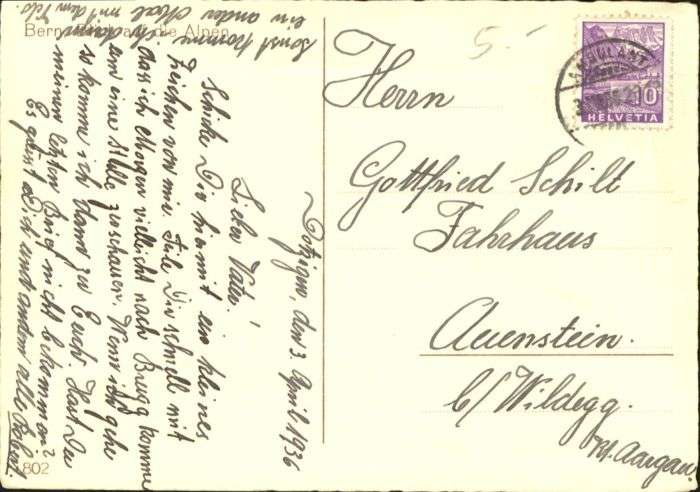 Bern. Blick auf die Alpen
Dotzigen, den 3. April 1936
Lieber Vater!
Schicke Dir hiermit ein kleines
Zeichen von mir. Teile Dir schnell mit
dass ich Morgen vielleicht nach Brugg komme
um eine Stelle zu schauen. Wenn ich gehe
so komme ich dann zu Euch. Hast Du
meinen letzten Brief nicht bekommen?
Es grüsst Dich und andern alle Robert.
Sonst komme ich dann
ein ander Mal mit dem Velo.
802
5.-
Herrn
Gottfried Schilt
Fahrhaus
Auenstein.
b/ Wildegg.
Kt. Aargau
AMBULANT
10
HELVETIA